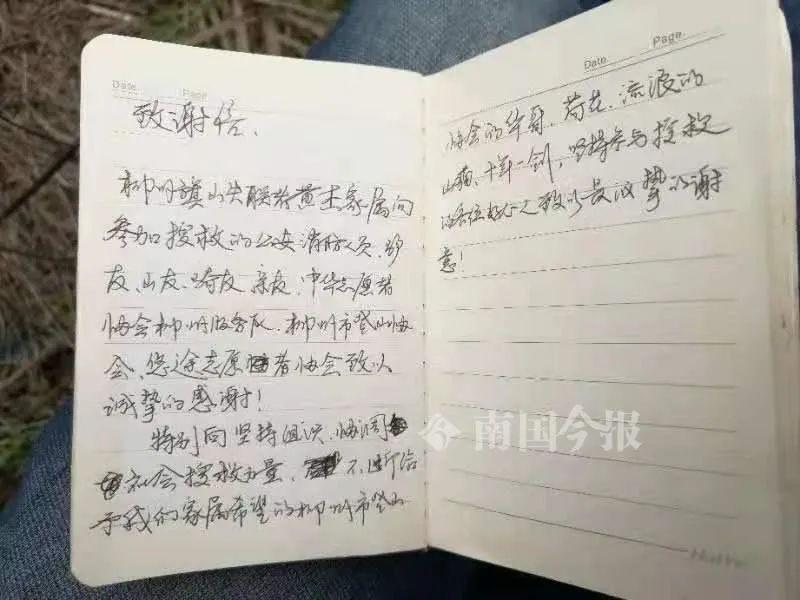 Date. Page
致谢信、
柳州旗山失联者黄某家属向
参加搜救的公安消防人员、驴
友、山友、骑友、亲友、中华志愿者
协会柳州服务队、柳州市登山协
会、悠途志愿者协会致以
诚挚的感谢！
特别向坚持组识、协调
社会搜救力量、不断给
予我们家属希望的柳州市登山
Date. Page.
协会的华哥、荷花、流浪的
山猫、十年一剑，坚持参与搜救
的各位好心人致以最诚挚的谢
意！
南国今报